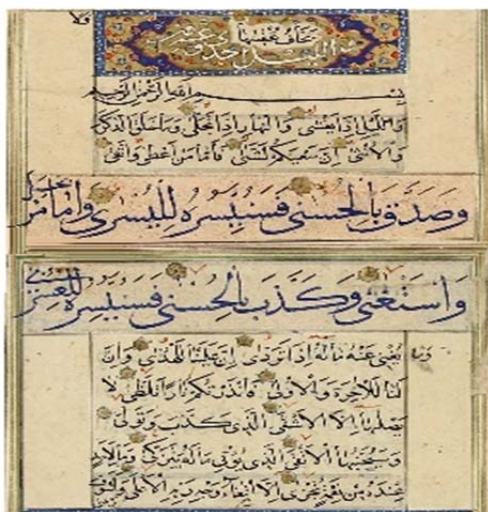 الليل احدى وعشر
بسم الله الرحمن الرحيم
وَالَّيْلِ إِذَا يَغْشَى وَالنَّهَارِ إِذَا تَجَلَّى وَمَا خَلَقَ الذَّكَرَ
وَالْأُنْثَى إِنَّ سَعْيَكُمْ لَشَتَّى فَأَمَّا مَنْ أَعْطَى وَاتَّقَى
وَصَدَّقَ بِالْحُسْنَى فَسَنُيَسِّرُهُ لِلْيُسْرَى وَأَمَّا مَنْ بَخِلَ
وَاسْتَغْنَى وَكَذَّبَ بِالْحُسْنَى فَسَنُيَسِّرُهُ لِلْعُسْرَى
وَمَا يُغْنِي عَنْهُ مَالُهُ إِذَا تَرَدَّى إِنَّ عَلَيْنَا لَلْهُدَى وَإِنَّ
لَنَا لَلْآخِرَةَ وَالْأُولَى فَأَنْذَرْتُكُمْ نَارًا تَلَظَّى لَا
يَصْلَاهَا إِلَّا الْأَشْقَى الَّذِي كَذَّبَ وَتَوَلَّى
وَسَيُجَنَّبُهَا الْأَتْقَى الَّذِي يُؤْتِي مَالَهُ يَتَزَكَّى وَمَا لِأَحَدٍ
عِنْدَهُ مِنْ نِعْمَةٍ تُجْزَى إِلَّا ابْتِغَاءَ وَجْهِ رَبِّهِ الْأَعْلَى وَلَسَوْفَ